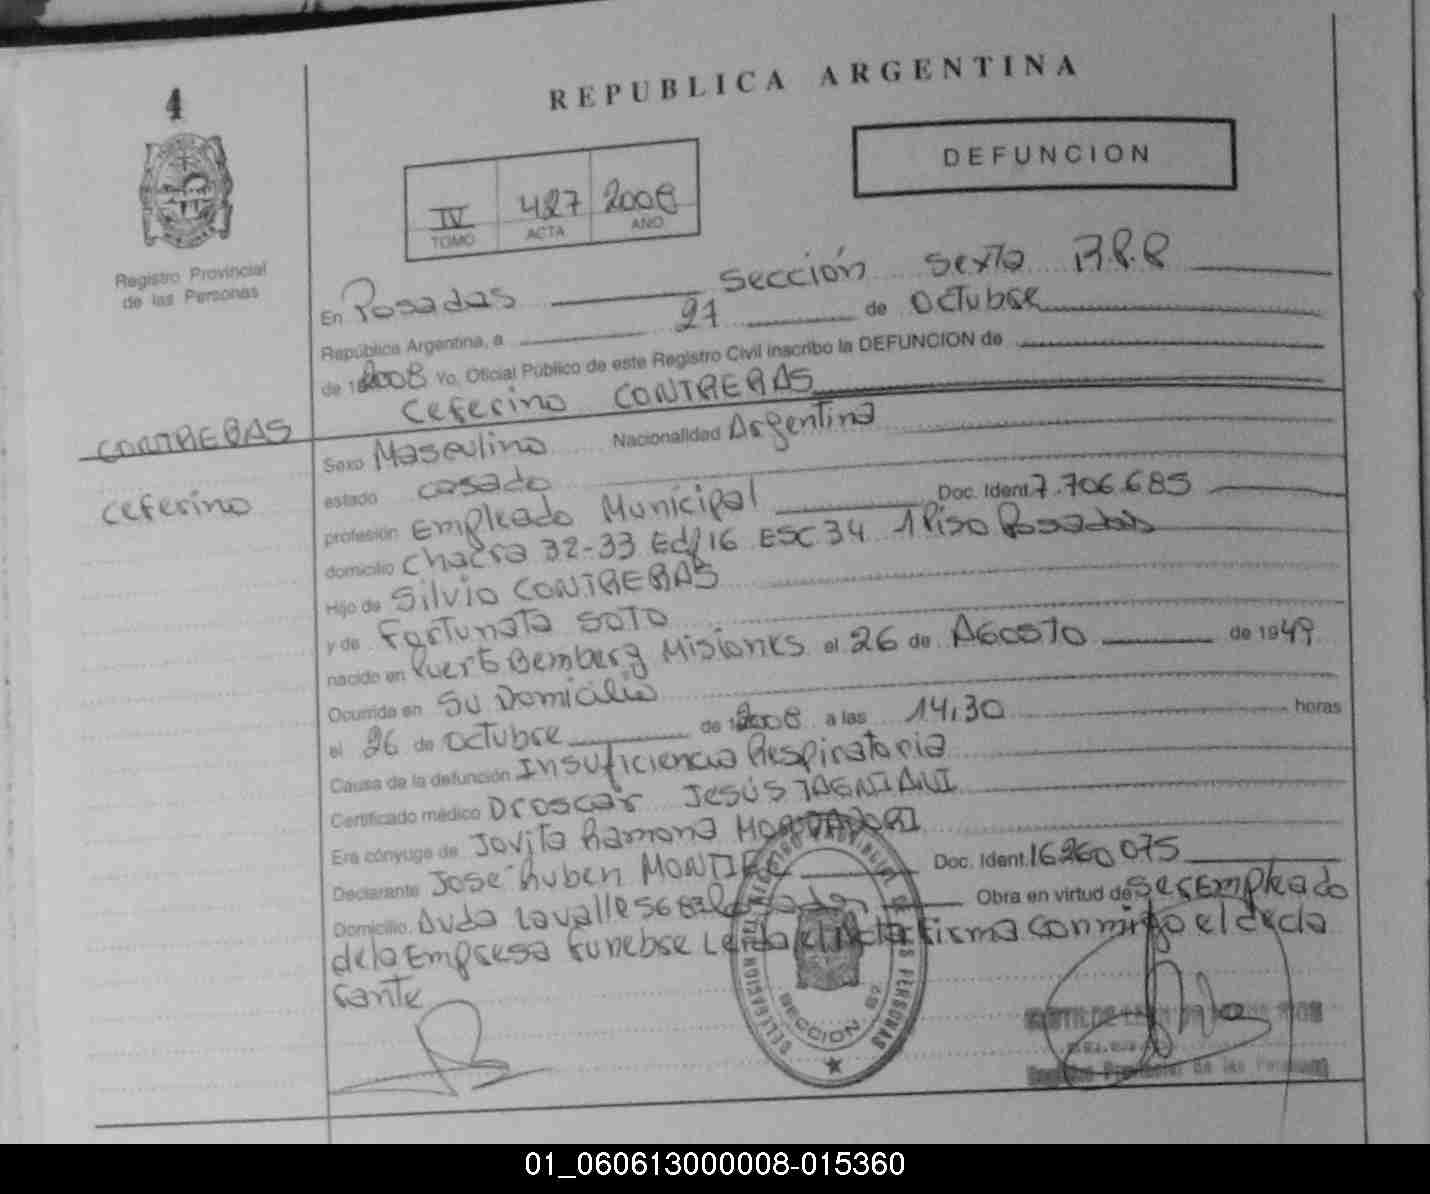 4
REPUBLICA ARGENTINA
DEFUNCION
IV 427 2008
TOMO ACTA AÑO
Registro Provincial
de las Personas
En Posadas Sección Sexta
República Argentina, a 27 de Octubre
de 2008 Yo, Oficial Público de este Registro Civil inscribo la DEFUNCION de
Ceferino CONTRERAS
CONTRERAS
Ceferino
Sexo Masculino Nacionalidad Argentina
estado casado
profesión Empleado Municipal Doc. Ident. 7.706.685
domicilio Chacra 32-33 Edf 16 ESC 34 1 Piso Posadas
Hijo de Silvio CONTRERAS
y de Fortunata SOTO
nacido en Puerto Bemberg Misiones el 26 de AGOSTO de 1949
Ocurrida en Su Domicilio
el 26 de Octubre de 2008 a las 14,30 horas
Causa de la defunción Insuficiencia Respiratoria
Certificado médico Dr Oscar Jesús TAGNIANI
Era cónyuge de Jovita Ramona
Declarante José Ruben Doc. Ident. 16260075
Domicilio. Avda Lavalle 5682 Obra en virtud de ser Empleado
de la Empresa Funebre Leida el Acta firma conmigo el decla
rante
DELEGACION DEL REGISTRO PROVINCIAL DE LAS PERSONAS
SECCION 6ª
Provincial de las Personas
01_060613000008-015360